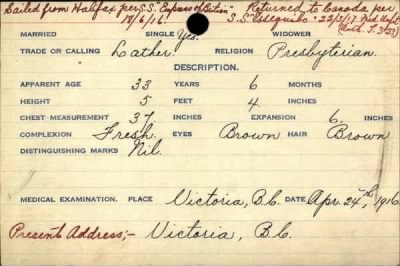 Sailed from Halifax per S.S. Empress of Britain Returned to Canada per
18/6/16 S.S. Essequibo 22/5/17 Med Unfit
MARRIED SINGLE Yes. WIDOWER
TRADE OR CALLING Lather. RELIGION Presbyterian.
DESCRIPTION.
APPARENT AGE 33 YEARS 6 MONTHS
HEIGHT 5 FEET 4 INCHES
CHEST MEASUREMENT 37 INCHES EXPANSION 6. INCHES
COMPLEXION Fresh. EYES Brown HAIR Brown
DISTINGUISHING MARKS Nil.
MEDICAL EXAMINATION. PLACE Victoria, B.C. DATE Apr. 24th, 1916
Present Address;- Victoria, B.C.